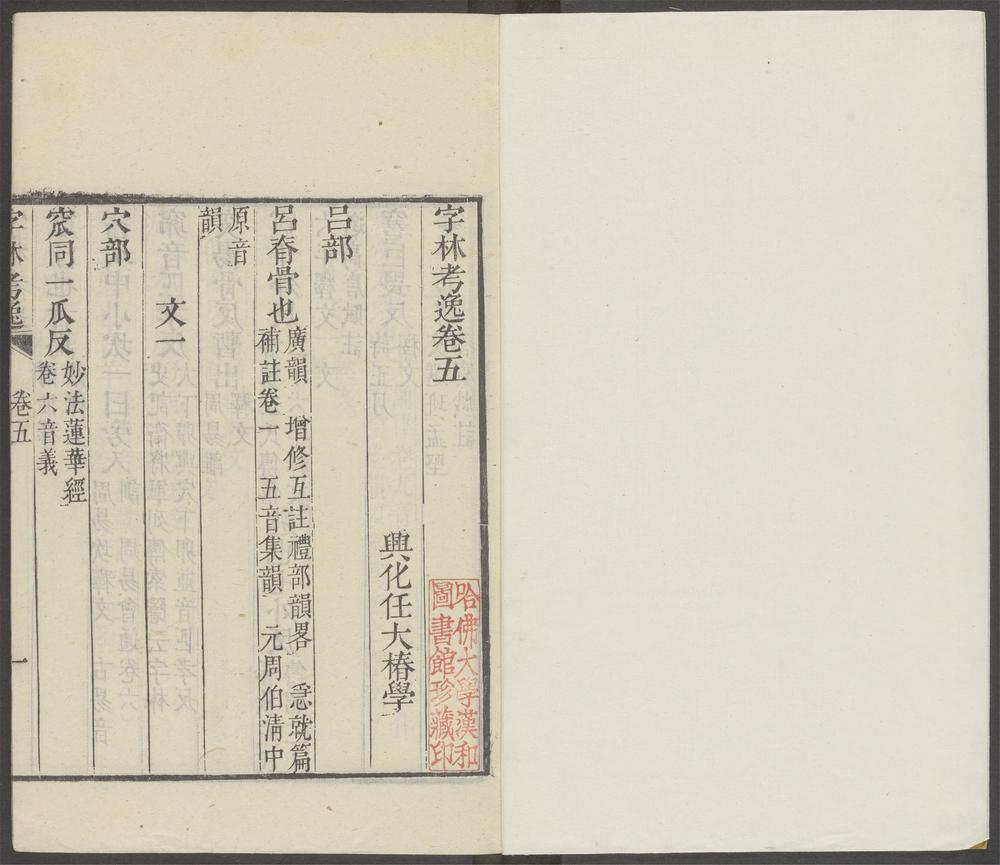 字林考逸卷五
興化任大椿學
呂部
呂脊骨也廣韻 增修互註禮部韻畧 急就篇
補註卷一 五音集韻 元周伯淸中
原音
韻
文一
穴部
窊同一瓜反妙法蓮華經
卷六音義
字林考逸 卷五 一
哈佛大學漢和
圖書館珍藏印